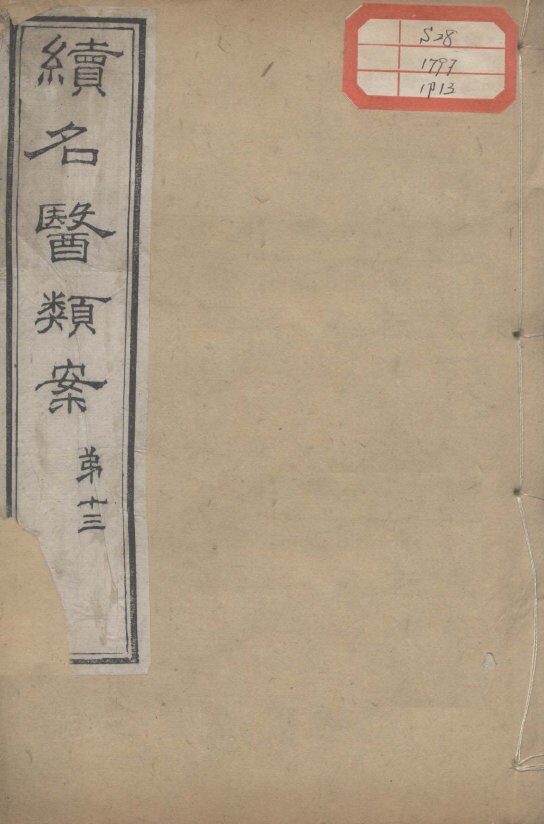 續名醫類案
弟十三
S28
1797
1:13